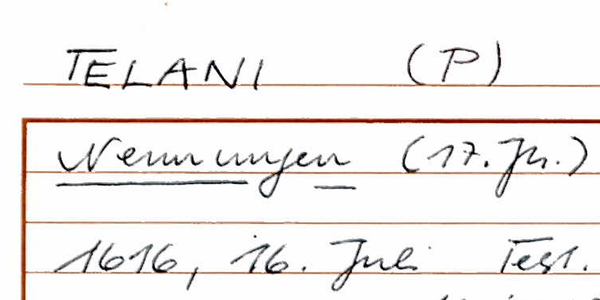 TELANI (P)
Nennungen (17. Jh.)
1616, 16. Juli Test.